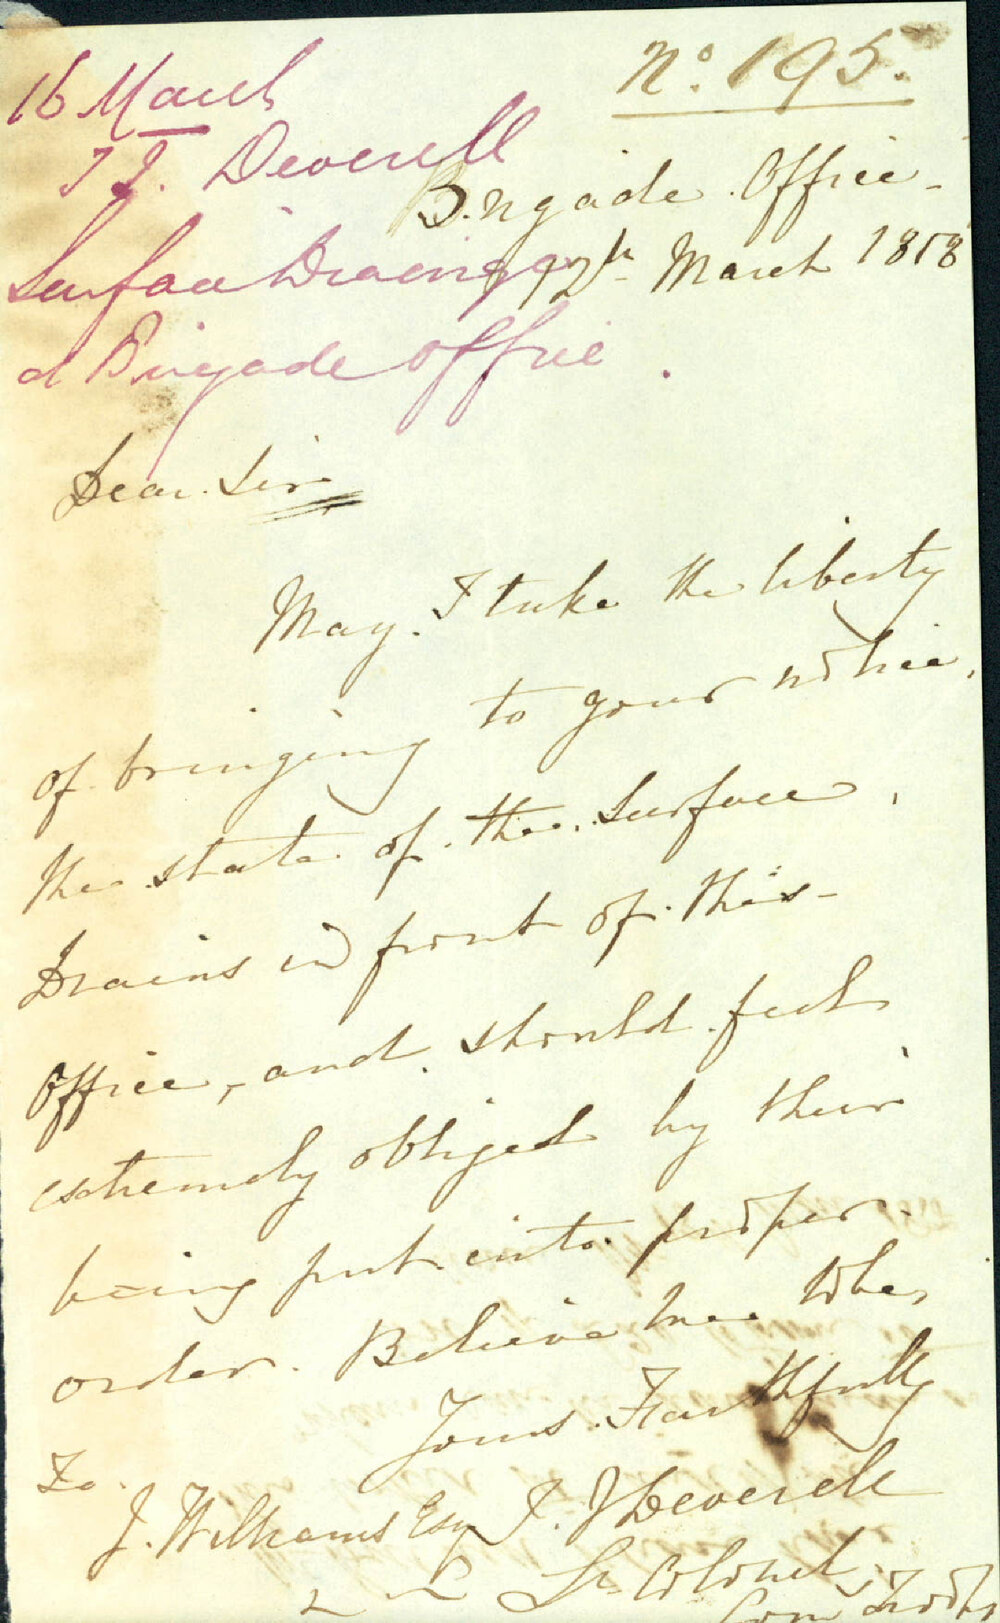 No. 195.
16 March
T J. Deverell
Surface Drainage
at Brigade office.
Brigade Office
12th March 1858
Dear Sir
May I take the liberty
of bringing to your notice,
the state of the Surface,
Drains in front of this
Office, and should feel
extremely obliged by their
being put into proper
order. Believe me to be,
Yours Faithfully
T. J Deverell
Lt Colonel
Com Troops
To
J. Williams Esq